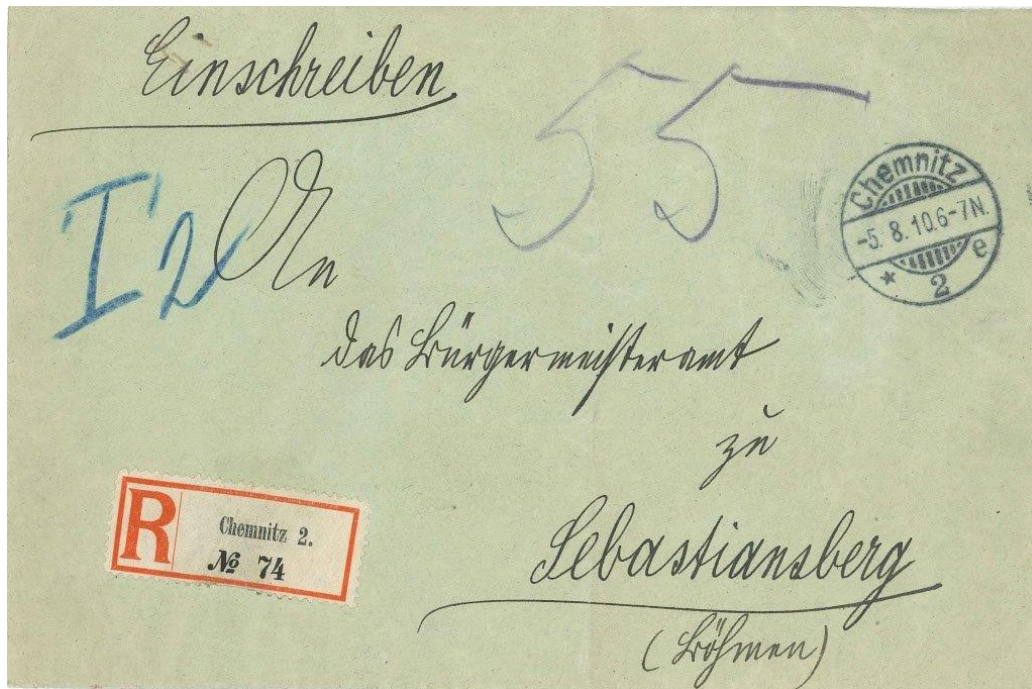 Einschreiben.
55
I 2
Chemnitz
-5. 8. 10. 6-7N.
* 2 e
An
das Bürgermeisteramt
zu
Sebastiansberg
(Böhmen)
R
Chemnitz 2.
№ 74